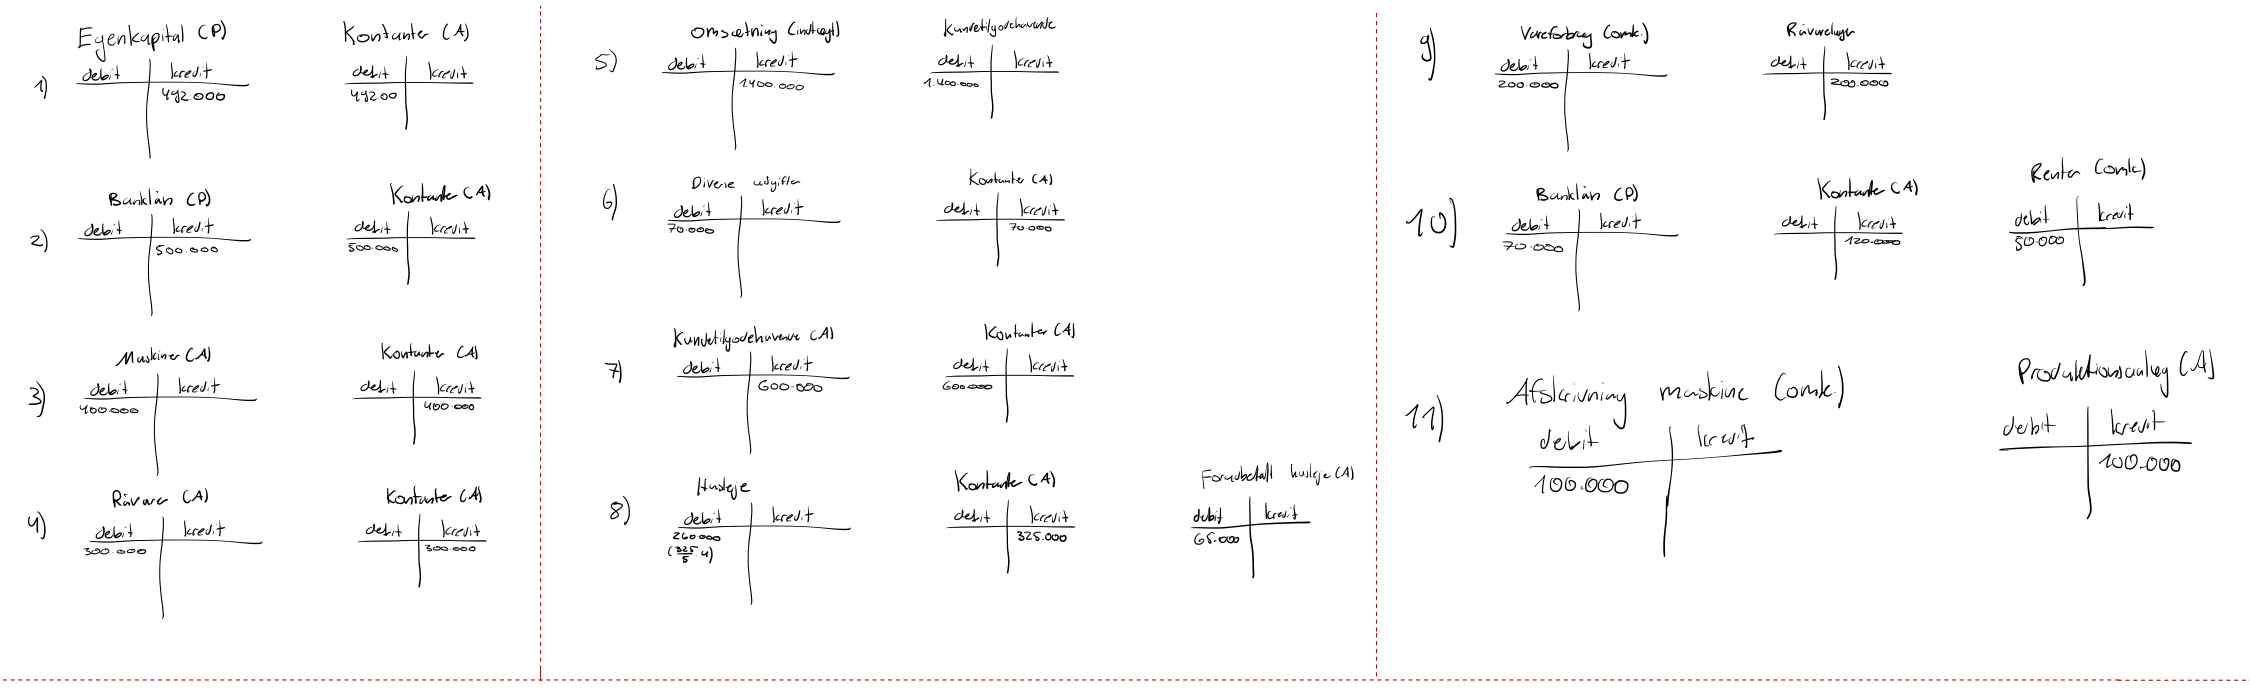 1)
Egenkapital (P)
debit kredit
492.000
Kontanter (A)
debit kredit
492.00
2)
Banklån (P)
debit kredit
500.000
Kontanter (A)
debit kredit
500.000
3)
Maskiner (A)
debit kredit
400.000
Kontanter (A)
debit kredit
400.000
4)
Råvarer (A)
debit kredit
300.000
Kontanter (A)
debit kredit
300.000
5)
Omsætning (indtægt)
debit kredit
1.400.000
Kundetilgodehavende
debit kredit
1.400.000
6)
Diverse udgifter
debit kredit
70.000
Kontanter (A)
debit kredit
70.000
7)
Kundetilgodehavende (A)
debit kredit
600.000
Kontanter (A)
debit kredit
600.000
8)
Husleje
debit kredit
260.000
(325/5 · 4)
Kontanter (A)
debit kredit
325.000
Forudbetalt husleje (A)
debit kredit
65.000
9)
Vareforbrug (omk.)
debit kredit
200.000
Råvarelager
debit kredit
200.000
10)
Banklån (P)
debit kredit
70.000
Kontanter (A)
debit kredit
120.000
Renter (omk)
debit kredit
50.000
11)
Afskrivning maskine (omk.)
debit kredit
100.000
Produktionsanlæg (A)
debit kredit
100.000